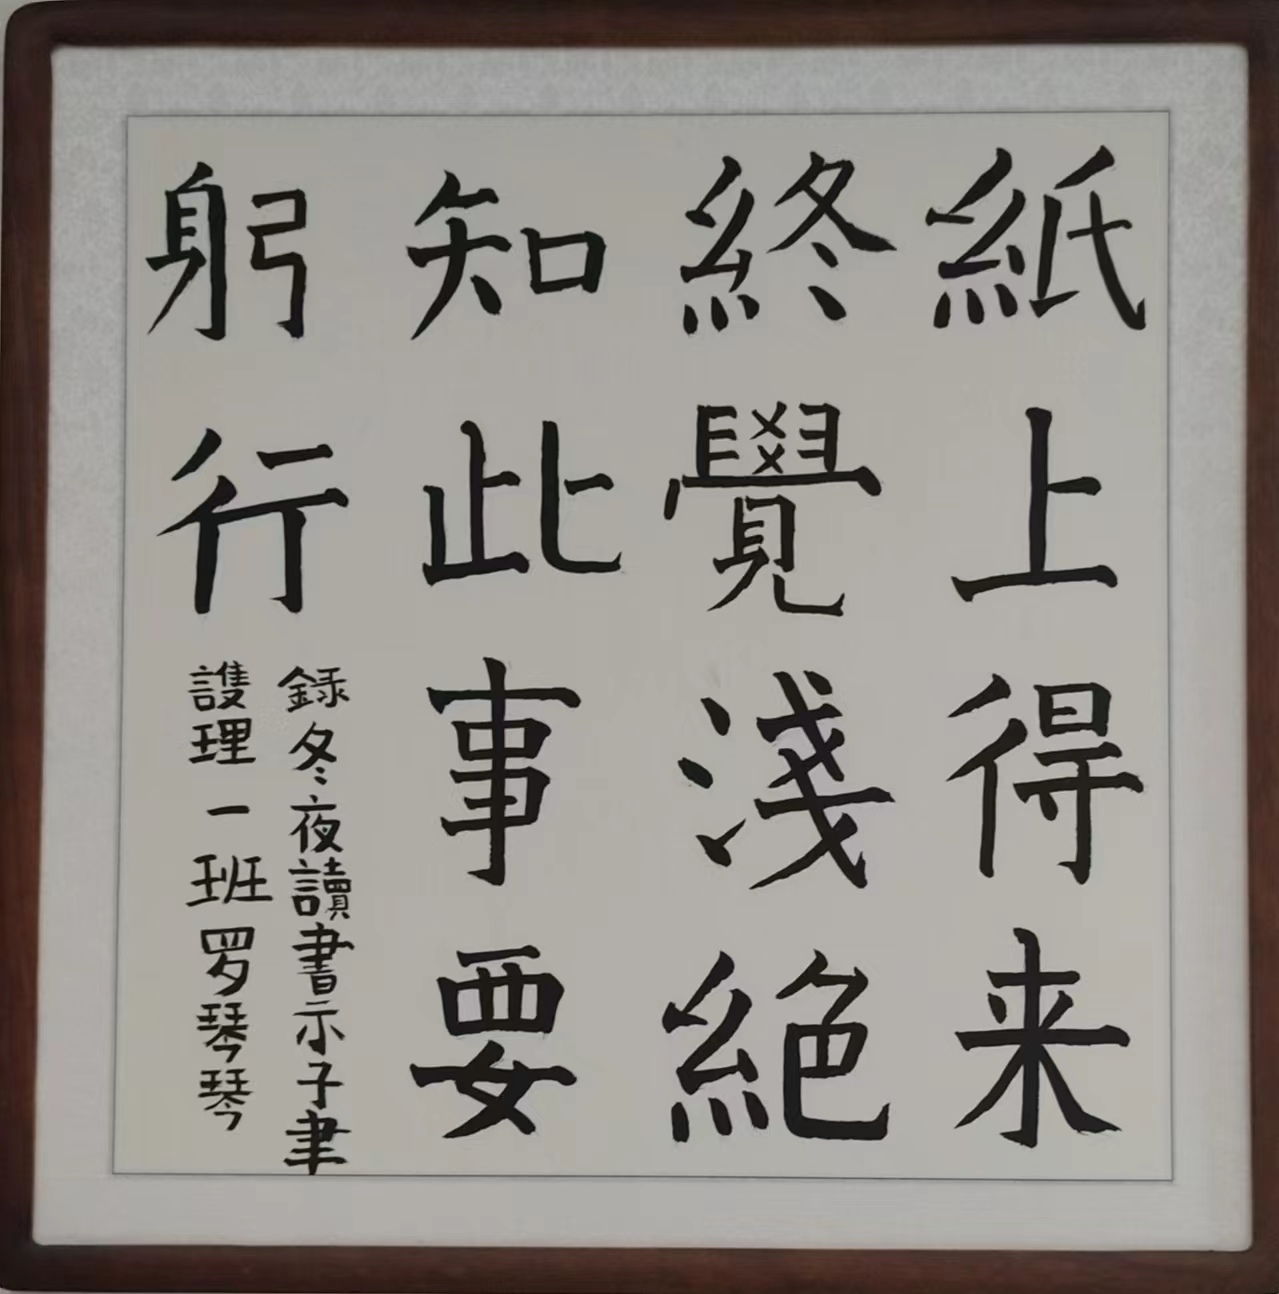 紙上得来
終覺淺絕
知此事要
躬行
録冬夜讀書示子聿
護理一班罗琴琴